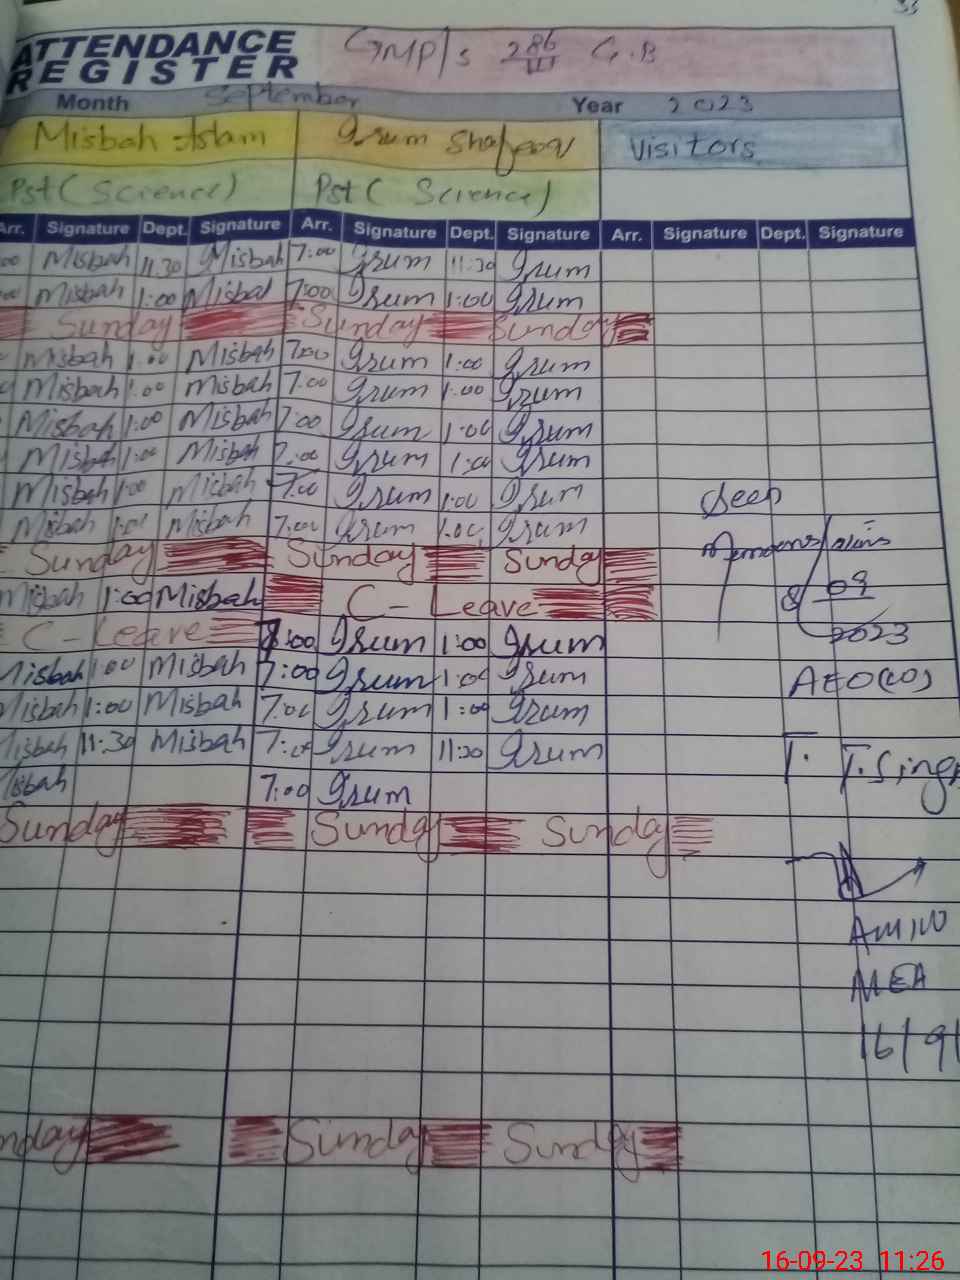 33
ATTENDANCE REGISTER
GMP/s 286/III G.B
Month September Year 2023
Misbah Islam Irum Shafeeq Visitors
Pst( Science) Pst( Science)
Arr. Signature Dept. Signature Arr. Signature Dept. Signature Arr. Signature Dept. Signature
00 Misbah 11.30 Misbah 7:00 Irum 11:30 Irum
00 Misbah 1:00 Misbah 7:00 Irum 1:00 Irum
Sunday Sunday Sunday
Misbah 1:00 Misbah 7:00 Irum 1:00 Irum
Misbah 1:00 Misbah 7:00 Irum 1:00 Irum
Misbah 1:00 Misbah 7:00 Irum 1:00 Irum
Misbah 1:00 Misbah 7:00 Irum 1:00 Irum
Misbah 1:00 Misbah 7:00 Irum 1:00 Irum
Misbah 1:00 Misbah 7:00 Irum 1:00 Irum
Seen
Sunday Sunday Sunday
Misbah 1:00 Misbah C- Leave
8/09
C- Leave 8:00 Irum 1:00 Irum
2023
Misbah 1:00 Misbah 7:00 Irum 1:00 Irum
AEO
Misbah 1:00 Misbah 7:00 Irum 1:00 Irum
Misbah 11:30 Misbah 7:00 Irum 11:30 Irum
T. T.Sing
isbah 7:00 Irum
Sunday Sunday Sunday
MEA
16/9/
nday Sunday Sunday
16-09-23 11:26